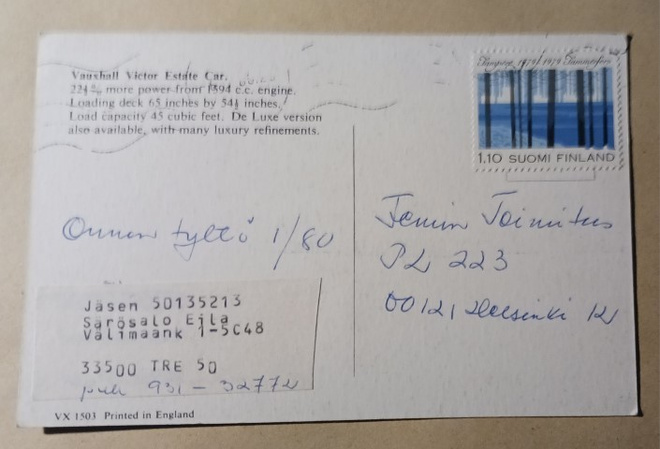 Vauxhall Victor Estate Car.
22½% more power from 1594 c.c. engine.
Loading deck 65 inches by 54½ inches.
Load capacity 45 cubic feet. De Luxe version
also available, with many luxury refinements.
Tampere 1779/1979 Tammerfors
1.10 SUOMI FINLAND
Onnen tyttö 1/80
Femin Toimitus
PL 223
00121 Helsinki 12
Jäsen 50135213
Särösalo Eila
Välimaank 1-5C48
33500 TRE 50
puh 931-32772
VX 1503 Printed in England